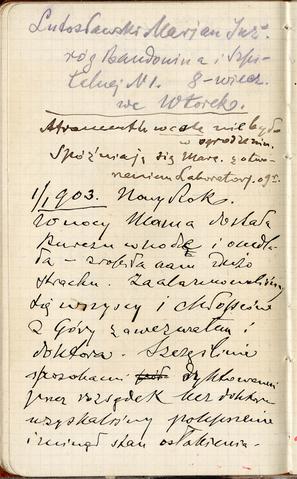 Lutosławski Marjan Inż.
róg Baudouina i Szpi-
talnej N 1. 8-wiecz.
we Wtorek.
Atramentu wcale nie było
w ogrodzeniu.
Spóźniają się Marc. z otwo-
rzeniem Laboratorj. o g.
1/I 903. Nowy Rok.
W nocy Mama dostała
kurczu w nodze i omdla-
ła – zrobiła nam dużo
strachu. Zaalarmowaliśmy
się wszyscy i chłopców
z Góry zawezwałem i
doktora. Szczęśliwie
sposobami dyktowanemi
przez rozsądek bez doktora
uzyskaliśmy polepszenie
i minął stan osłabienia.